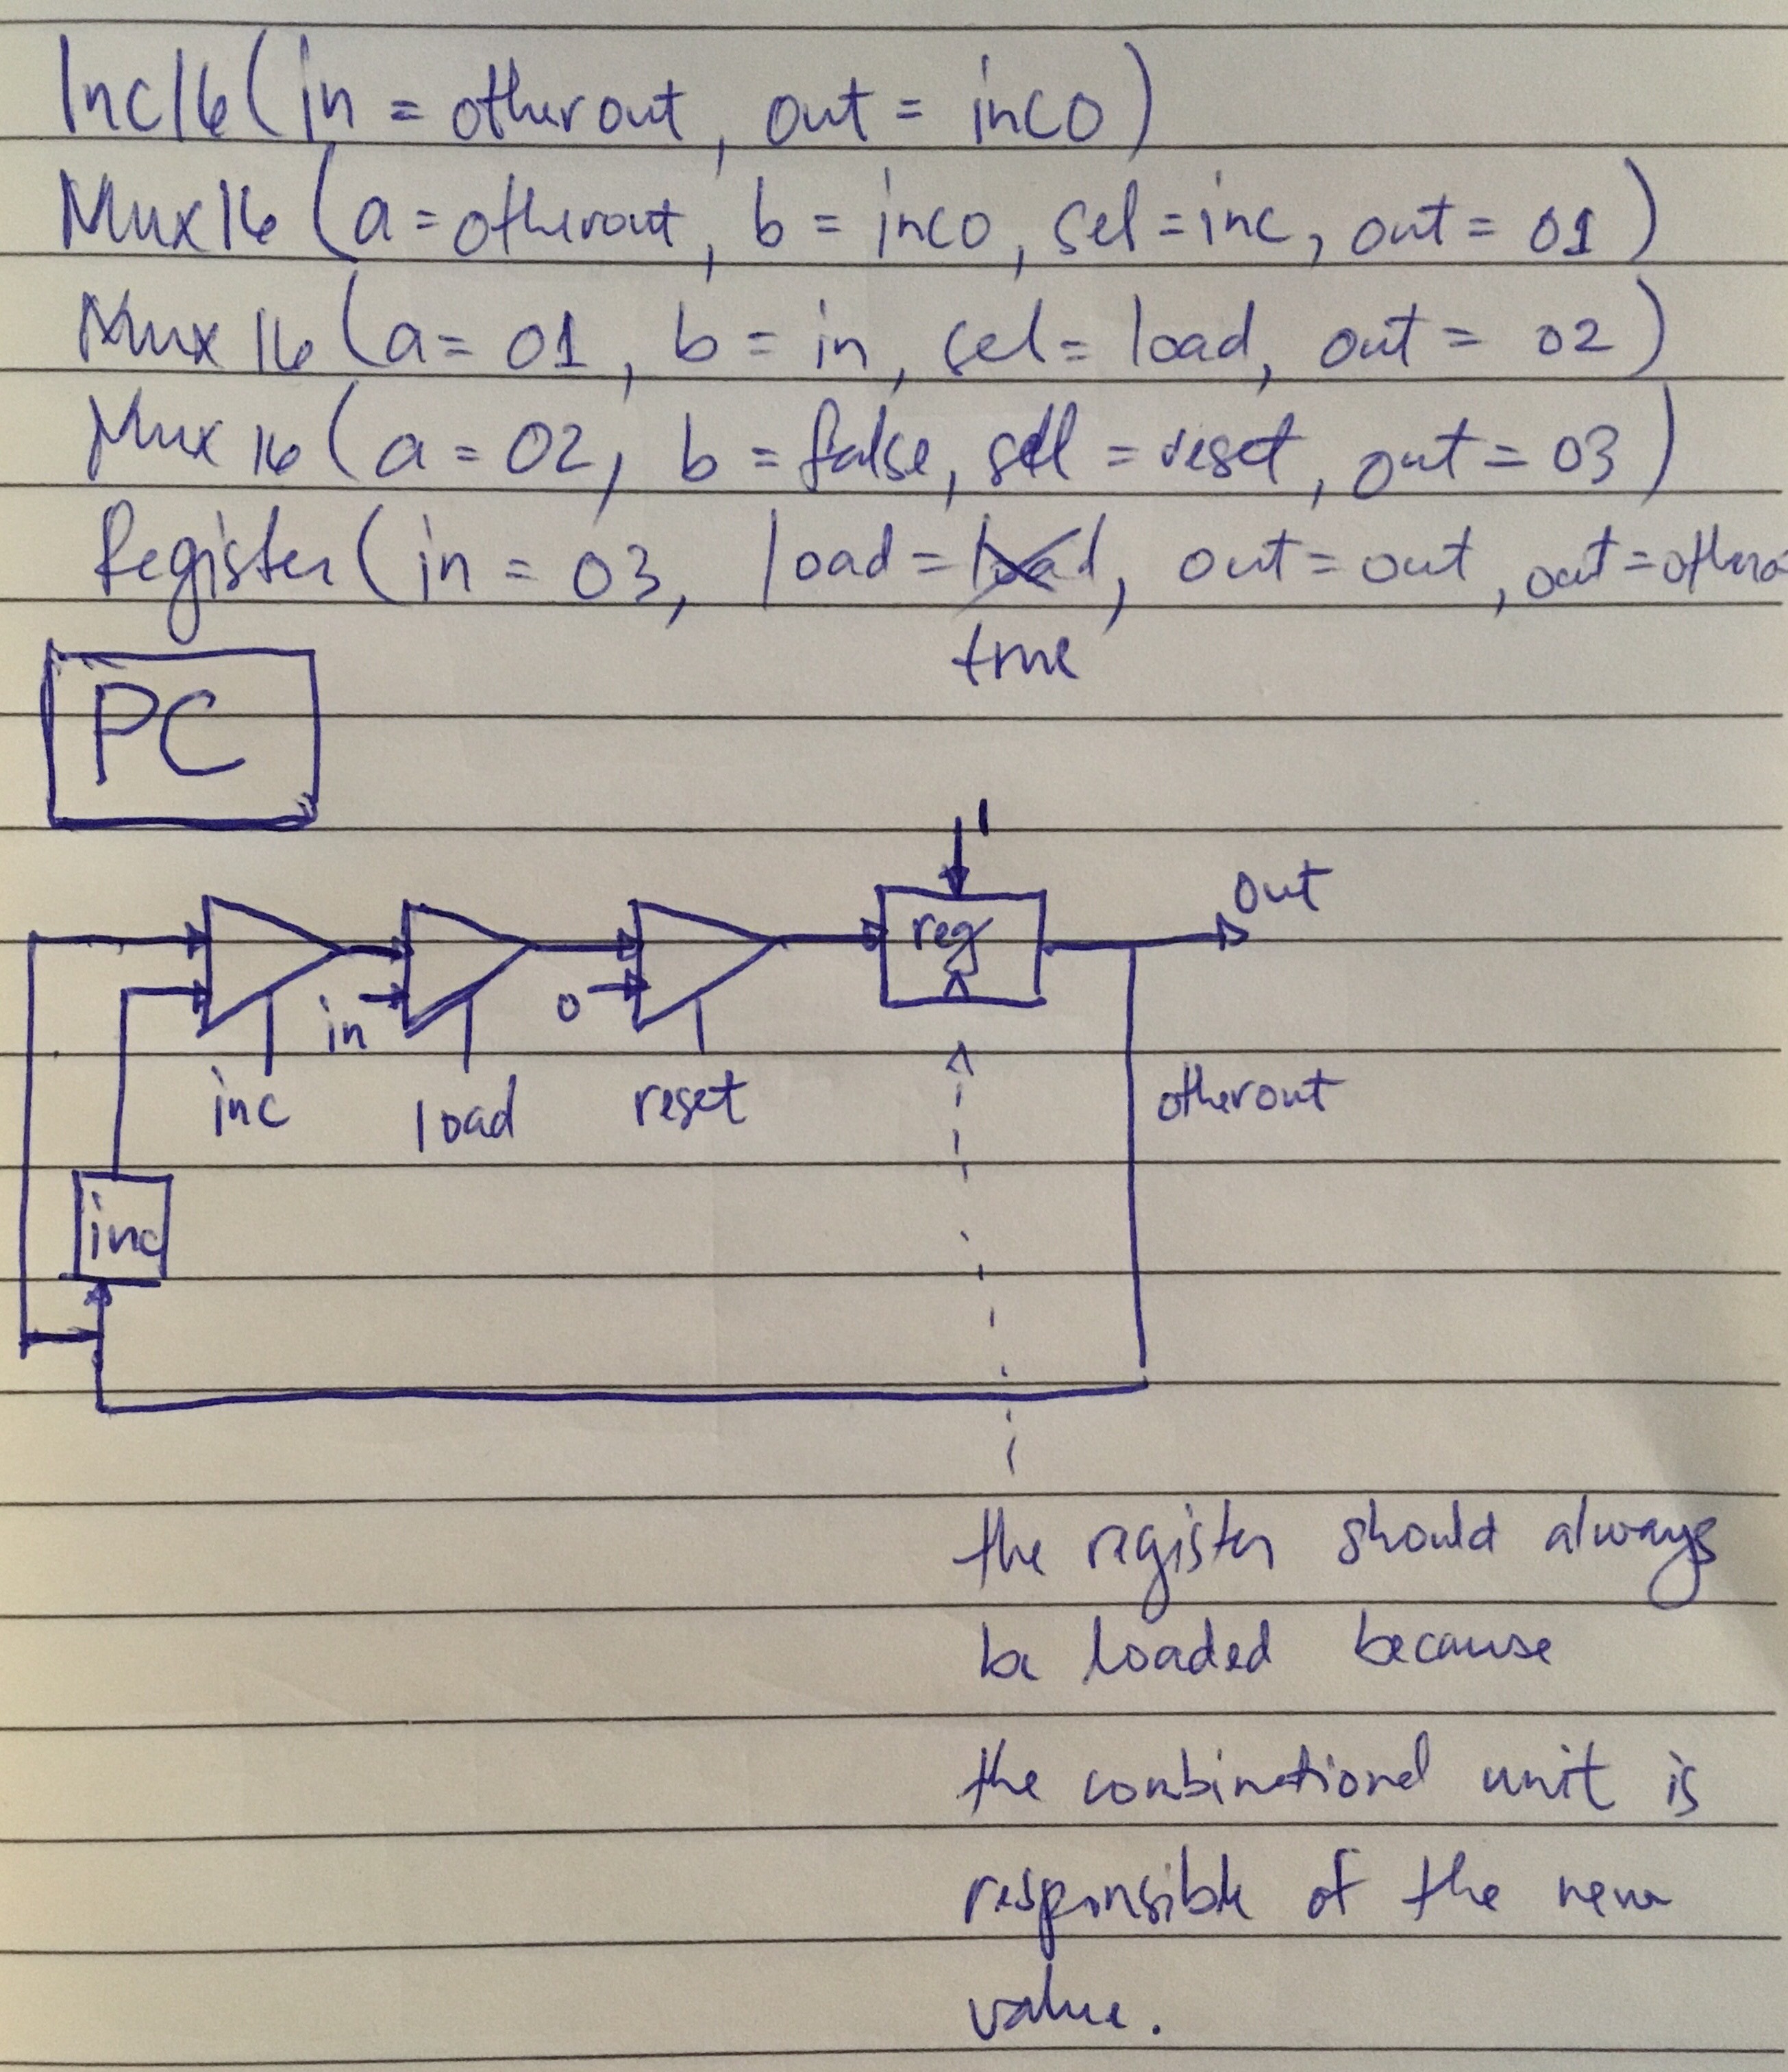 Inc16 (in = otherout, out = inco)
Mux16 (a = otherout, b = inco, sel = inc, out = o1)
Mux16 (a = o1, b = in, sel = load, out = o2)
Mux16 (a = o2, b = false, sel = reset, out = o3)
Register (in = o3, load = load, out = out, out = othero
true
PC
1
out
reg
in
0
inc
load
reset
otherout
inc
the register should always
be loaded because
the combinational unit is
responsible of the new
value.